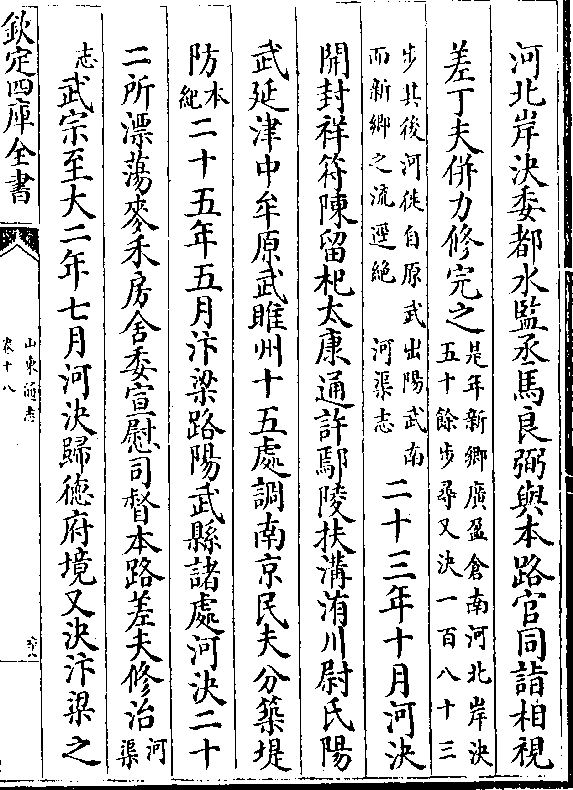 河北岸決委都水監丞馬良弼與本路官同詣相視
差丁夫併力修完之是年新鄉廣盈倉南河北岸決五十餘步尋又決一百八十三
步其後河徙自原武出陽武南而新鄉之流遂絕 河渠志 二十三年十月河決
開封祥符陳留杞太康通許鄢陵扶溝洧川尉氏陽
武延津中牟原武睢州十五處調南京民夫分築堤
防本紀二十五年五月汴梁路陽武縣諸處河決二十
二所漂蕩麥禾房舍委宣慰司督本路差夫修治河渠
志武宗至大二年七月河決歸德府境又決汴梁之
欽定四庫全書
山東通志
卷十八